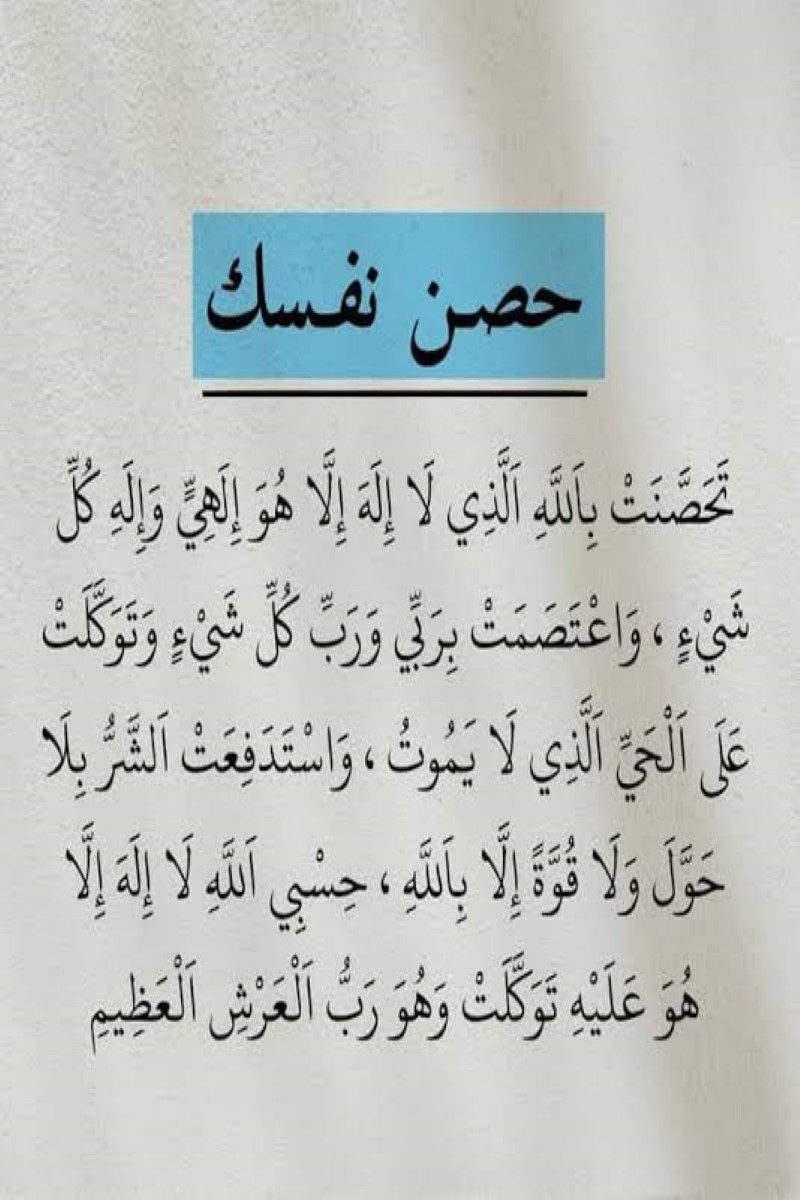 حصن نفسك
تَحَصَّنَتْ بِاَللَّهِ اَلَّذِي لَا إِلَهَ إِلَّا هُوَ إِلَهِيٍّ وَإِلَهِ كُلِّ
شَيْءٍ ، وَاعْتَصَمَتْ بِرَبِّي وَرَبِّ كُلِّ شَيْءٍ وَتَوَكَّلَتْ
عَلَى اَلْحَيِّ اَلَّذِي لَا يَمُوتُ ، وَاسْتَدَفِعَتْ اَلشَّرُّ بِلَا
حَوَّلَ وَلَا قُوَّةً إِلَّا بِاَللَّهِ ، حِسْبِي اَللَّهِ لَا إِلَهَ إِلَّا
هُوَ عَلَيْهِ تَوَكَّلَتْ وَهُوَ رَبُّ اَلْعَرْشِ اَلْعَظِيمِ